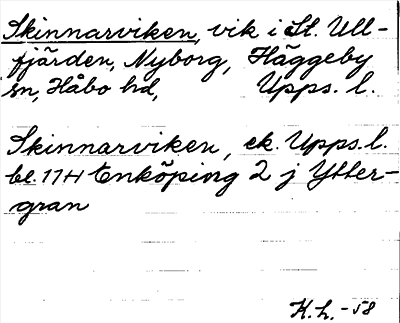 Skinnarviken, vik i St. Ull-
fjärden, Nyborg, Häggeby
sn, Håbo hd, Upps. l.
Skinnarviken, ek. Upps. l.
bl. 11H Enköping 2 j Ytter-
gran
K.h. -58